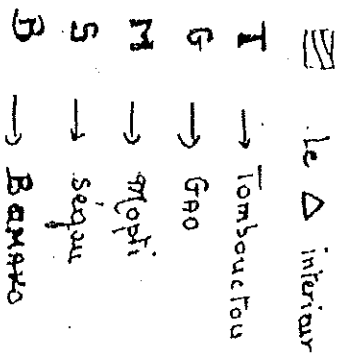 le △ interieur
T → Tombouctou
G → GAO
M → Mopti
S → Ségou
B → BAMAKO